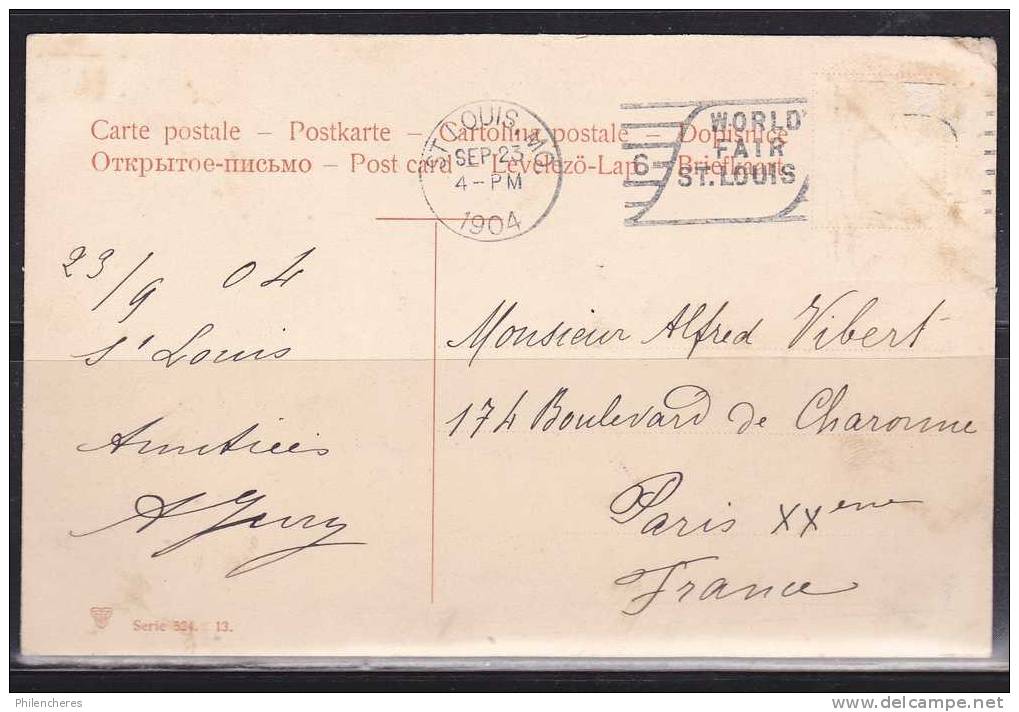 Carte postale – Postkarte – Cartolina postale – Dopisnice
Открытое-письмо – Post card – Levelezö-Lap – Briefkaart
ST. LOUIS, MO.
SEP 23
4-PM
1904
6
WORLD'S
FAIR
ST. LOUIS
23/9 04
St Louis
Amitiées
Monsieur Alfred Vibert
174 Boulevard de Charonne
Paris XXeme
France
Serie 524. 13.
Philencheres
www.delcampe.net